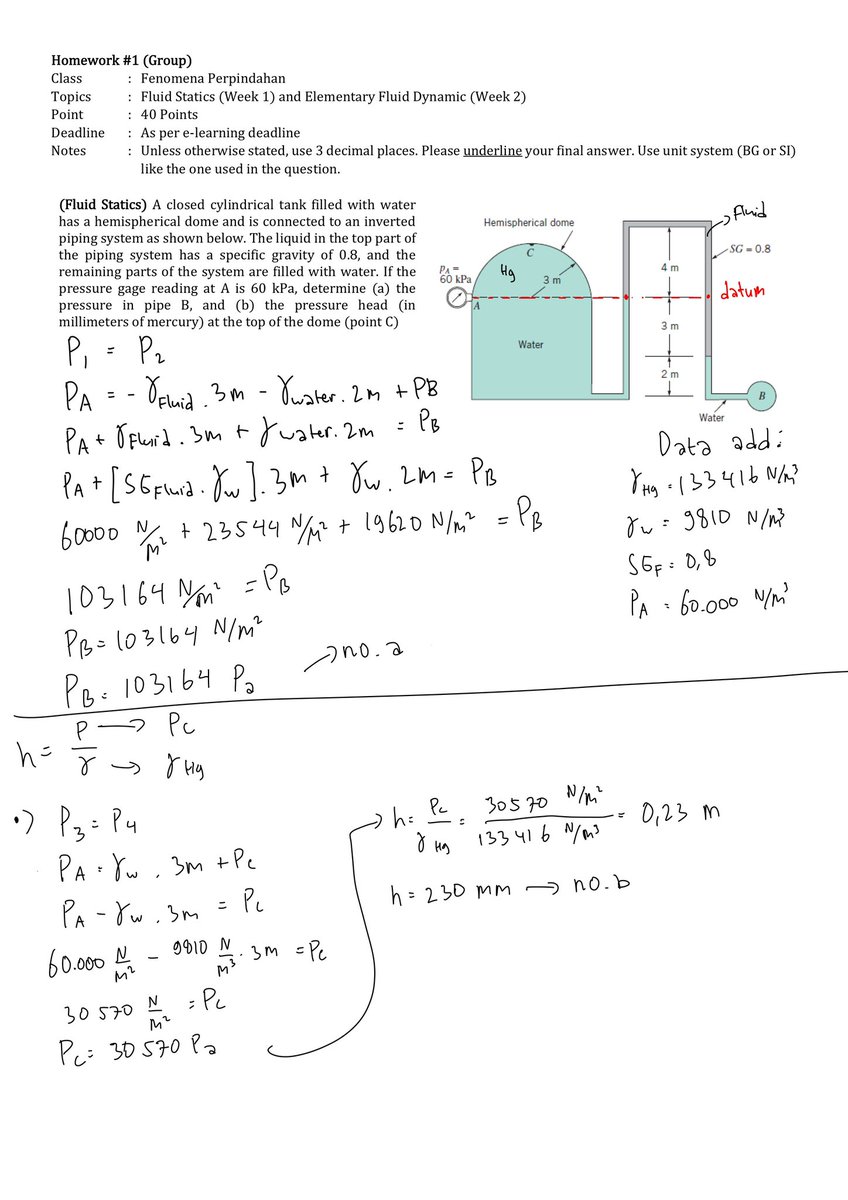 Homework #1 (Group)
Class : Fenomena Perpindahan
Topics : Fluid Statics (Week 1) and Elementary Fluid Dynamic (Week 2)
Point : 40 Points
Deadline : As per e-learning deadline
Notes : Unless otherwise stated, use 3 decimal places. Please underline your final answer. Use unit system (BG or SI)
like the one used in the question.
(Fluid Statics) A closed cylindrical tank filled with water
has a hemispherical dome and is connected to an inverted
piping system as shown below. The liquid in the top part of
the piping system has a specific gravity of 0.8, and the
remaining parts of the system are filled with water. If the
pressure gage reading at A is 60 kPa, determine (a) the
pressure in pipe B, and (b) the pressure head (in
millimeters of mercury) at the top of the dome (point C)
Hemispherical dome
Fluid
C
SG = 0.8
pA =
60 kPa
Hg
3 m
4 m
A
datum
3 m
Water
2 m
B
Water
P1 = P2
PA = - γFluid . 3m - γwater. 2m + PB
PA + γFluid . 3m + γwater. 2m = PB
PA + [SGFluid . γw] . 3m + γw . 2m = PB
60000 N/m² + 23544 N/m² + 19620 N/m² = PB
103164 N/m² = PB
PB = 103164 N/m²
PB = 103164 Pa → no. a
Data add :
γHg = 133416 N/m³
γw = 9810 N/m³
SGF = 0,8
PA = 60.000 N/m³
h = P/γ
P → PC
γ → γHg
•) P3 = P4
PA = γw . 3m + PC
PA - γw . 3m = PC
60.000 N/m² - 9810 N/m³ . 3m = PC
30570 N/m² = PC
PC = 30570 Pa
→ h = PC/γHg = 30570 N/m² / 133416 N/m³ = 0,23 m
h = 230 mm → no. b